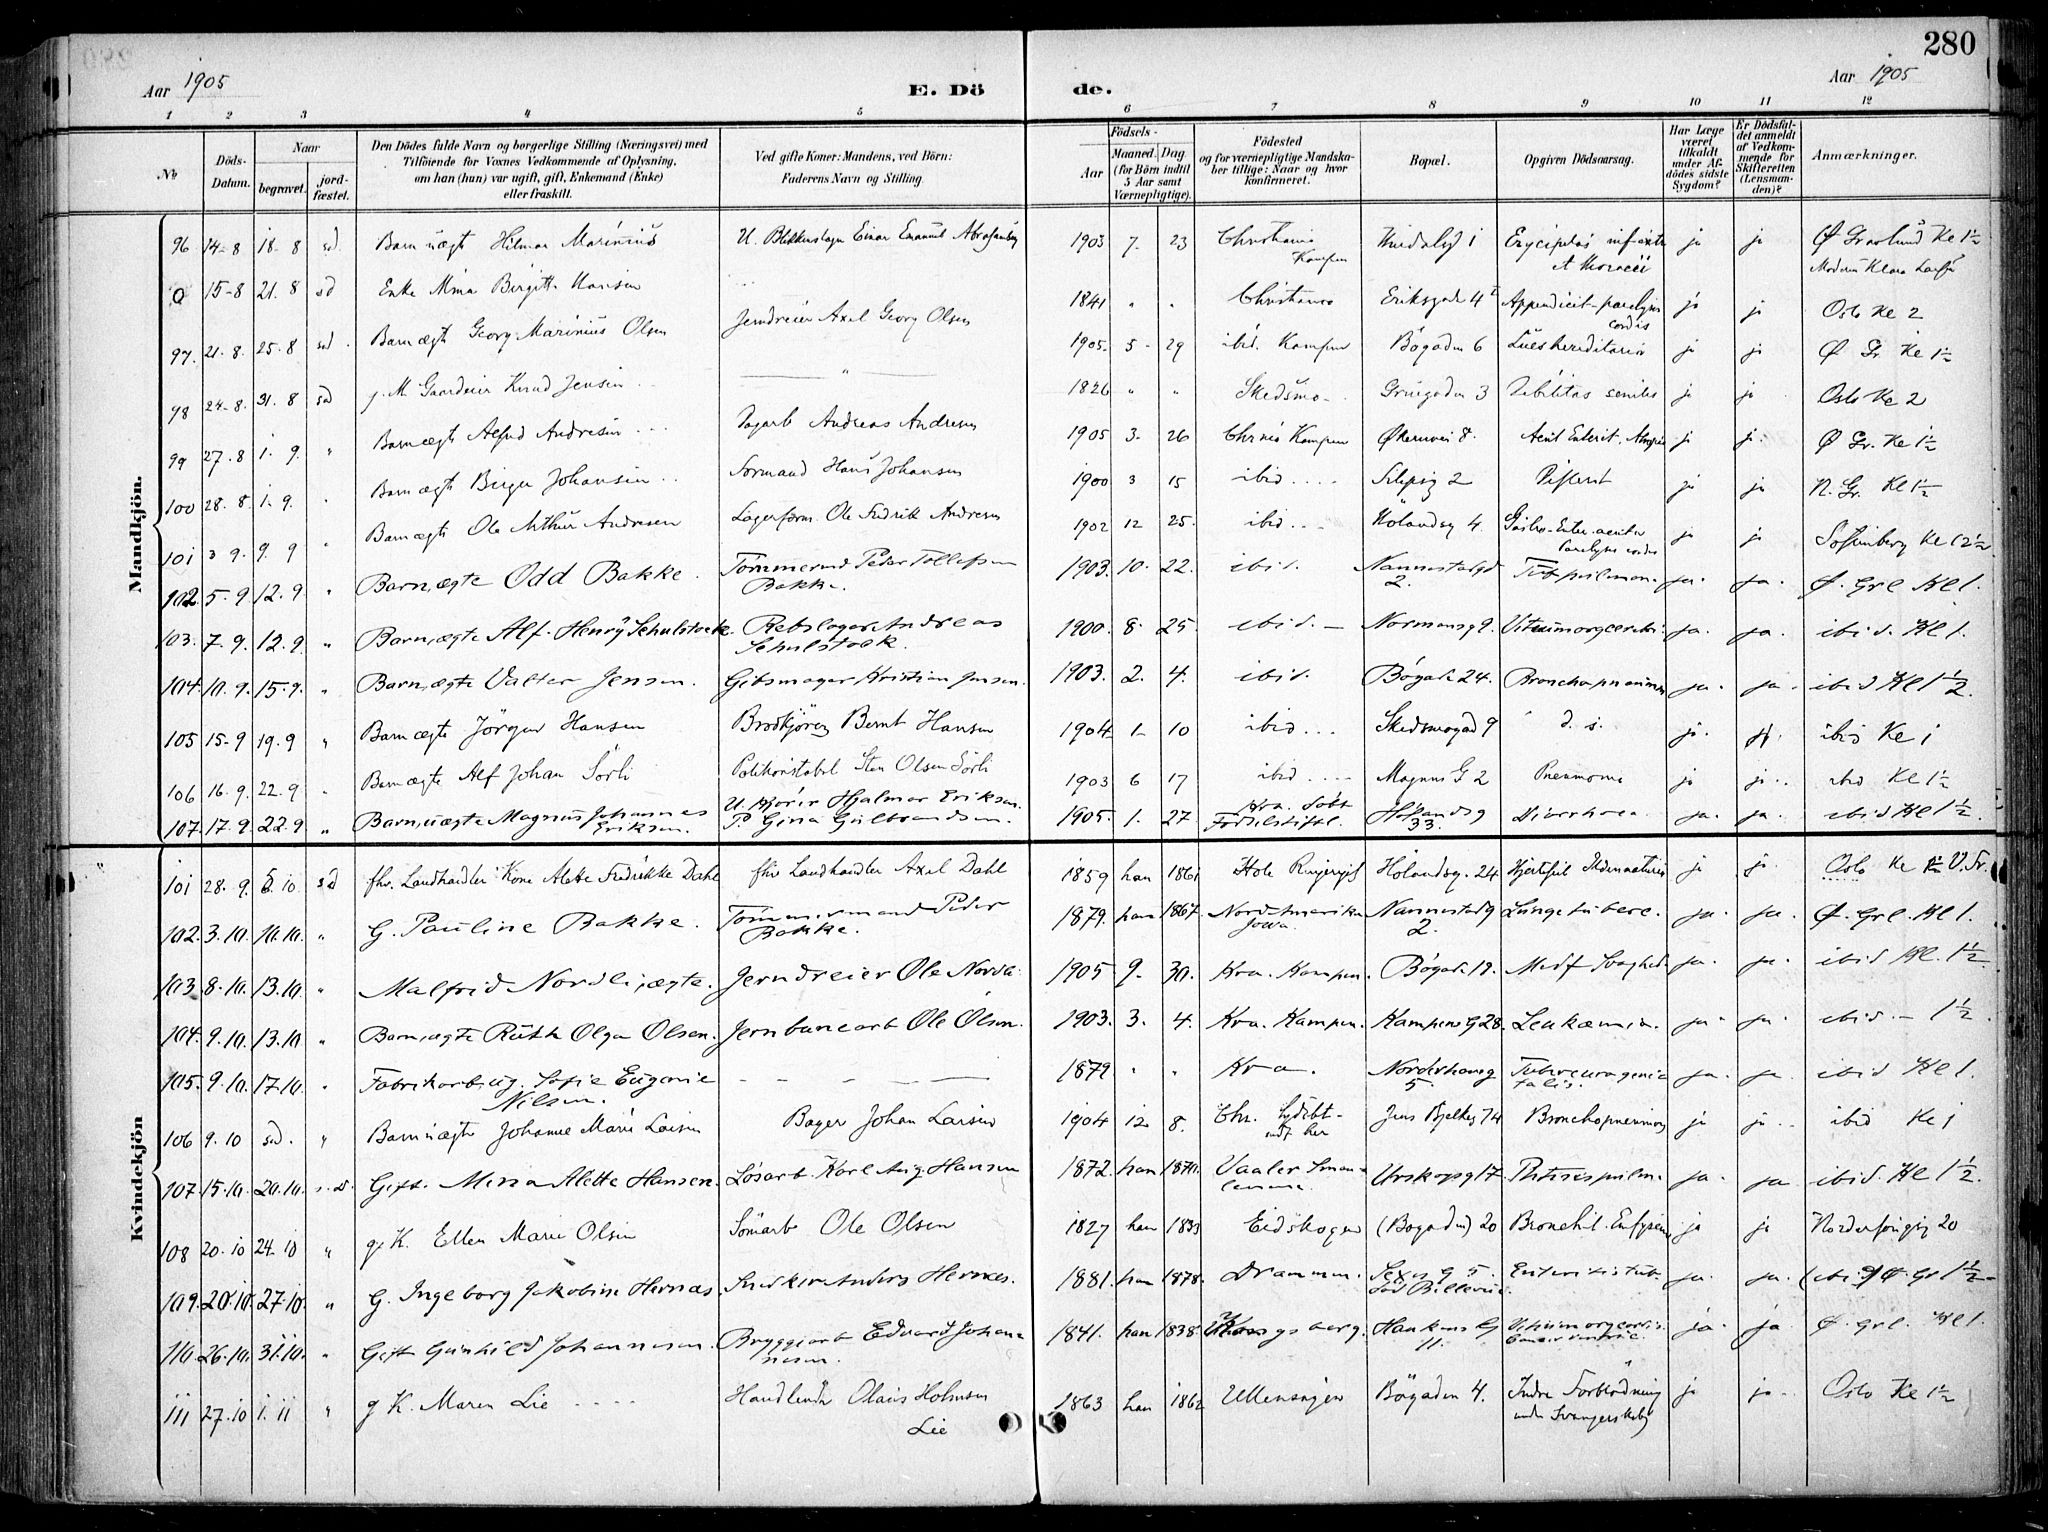 280
Aar 1905 E. Dö de. Aar 1905
1 2 3 4 5 6 7 8 9 10 11 12
No
Döds-Datum.
Naar
begravet. jordfæstet.
Den Dödes fulde Navn og borgerlige Stilling (Næringsvei) med
Tilföiende for Voxnes Vedkommende af Oplysning,
om han (hun) var ugift, gift, Enkemand (Enke)
eller fraskilt.
Ved gifte Koner: Mandens, ved Börn:
Faderens Navn og Stilling
Födsels-
Aar Maaned. Dag
(for Börn indtil
5 Aar samt
Værnepligtige).
Födested
og for værnepligtige Mandska-
ber tillige: Naar og hvor
konfirmeret.
Bopæl.
Opgiven Dödsaarsag.
Har Læge
været
tilkaldt
under Af-
dödes sidste
Sygdom?
Er Dödsfal-
det anmeldt
af Vedkom-
mende for
Skifteretten
(Lensman-
den)?
Anmærkninger.
Mandkjön.
96 14-8 18-8 sd. Barn uægt Hilmar Marinius U. Blikkenslager Einar Emanuel 1903 7 23 Christiania Kampen 1 ja ja Ø Kl 1½
0 15-8 21.8 sd Enke Mina Birgitte Hansen 1841 " " Christiania Eriksgad 4 Appendicit-paralysis cordis ja ja Oslo Kl 2
97. 21.8. 25.8 sd. Barn ægt Georg Marinius Olsen Jerndreier Axel Georg Olsen 1905. 5- 29 ibid. Kampen Bögaden 6 Lues hereditaria ja ja Ø Gr. Kl 1½
98 24-8. 31.8 sd g. M. Gaardeier Knud Jensen " 1826 " " Skedsmo Grügaden 3 Debilitas senilis ja ja Oslo Kl 2
99 27.8 1. 9. " Barn ægt Alfred Andresen Dagarb Andreas Andresen 1905 3. 26 Chrnia Kampen Økernvei 8. Acut Enterit. ja ja. Ø Gr. Kl 1½
100 28.8. 1.9. " Barn ægte Birger Johansen Formand Hans Johansen 1900 3 15 ibid Slepig 2 Difterit ja ja N. Gr. Kl 1½
101 3 9. 9. 9 " Barn ægt Ole Arthur Andresen Lagerform. Ole Fredrik Andresen 1902 12 25. ibid Hölandsg 4. Gastro-Enter. acuta Paralysis cordis ja ja Sofienberg Kl 2½
102. 5.9. 12.9. " Barn, ægte Odd Bakke. Tömmermd Peder Tollefsen Bakke. 1903. 10. 22. ibid. Nannestadgd 2. Tub pulmon. ja. ja. Ø. Grl Kl 1.
103. 7.9. 12.9. " Barn, ægte Alf. Henry Schulstock. Rebslager Andreas Schulstock. 1900. 8. 25. ibid. — Normansg 9. Vitium org cerebri ja. ja. ibid. Kl 1.
104. 10.9. 15.9. " Barn, ægte Valter Jensen. Gibsmager Kristian Jensen. 1903. 2. 4. ibid. Bögad. 24. Bronchopneumon ja. ja. ibid Kl 1½.
105 15-9 19.9 " Barn ægte Jörgen Hansen Brödkjörer Bernt Hansen 1904 1- 10 ibid Skedsmogad 9 d. s. ja. ja. ibid Kl 1
106 16.9. 22.9 " Barn ægte Alf Johan Sörli Politikonstabel Sten Olsen Sörli 1903 6 17 ibid Magnus G 2 Pneumonia ja ja ibid Kl 1½
107. 17.9. 22.9 " Barn, uægte Magnus Johannes Eriksen. U. Kjörer Hjalmar Eriksen. P. Gina Gulbrandsen. 1905. 1. 27. Kra. Födselstiftl. Hölandsg 33. Diarrhoea. ja. ja. ibid Kl 1½.
Kvindekjön
101 28.9. 5.10. sd fhv. Landhandler Kone Alette Fredrikke Dahl fhv Landhandler Axel Dahl 1859 han 1861 Hole Ringerige Hölandsg. 24 Hjertefeil ja ja. Oslo Kl 1½ V. Fr.
102. 3.10. 10.10. " G. Pauline Bakke. Tömmermand Peder Bakke. 1879. han 1867. Nord-Amerika Jowa. Nannestadg 2. Lungetuberc. ja. ja. Ø. Grl. Kl 1.
103 8.10. 13.10. " Malfrid Nordli, ægte. Jerndreier Ole Nordli 1905 9. 30. Kra. Kampen. Bögad. 18. Medf Svaghed ja. ja. ibid Kl. 1½.
104. 9.10. 13.10 " Barn, ægte Ruth Olga Olsen. Jernbanearb Ole Olsen. 1903. 3. 4. Kra. Kampen. Kampens G 28. Leukæmia. ja. ja. ibid — 1½.
105. 9.10. 17.10. " Fabrikarb, ug. Sofie Eugenie Nilsen. 1879 " " Kra. Norderhovsg 5. Tub. urogenitalis. ja. ja. ibid Kl 1.
106 9.10 sd. " Barn uægte Johanne Marie Larsen Bager Johan Larsen 1904 12 8. Chr. Jens Bjelkes 74 Bronchopneumoni ja ja ibid Kl 1
107. 15.10. 20.10. s.d. Gift. Mina Alette Hansen. Lösarb. Karl Aug. Hansen 1872. han 1870. Vaaler Smaalenene. Urskogsg 17. Phtisis pulm. ja. ja ibid. Kl 1½.
108 20.10 24.10 " g. K. Ellen Marie Olsen Sömarb Ole Olsen 1827 han 1833 Eidskogen (Bögaden) 20 Bronchit. Emfysem ja ja 20
109. 20.10. 27.10. " G. Ingeborg Jakobine Hernæs. Snedker Anders Hernes. 1881. han 1878. Drammen. Sexes g 5. Enteritis tub. ja. ja. (ibid) Ø. Gr 1½
110 26.10. 31.10. " Gift Gunhild Johannesen. Bryggearb Edvard Johannesen. 1841. han 1838. Kongsberg. Haukens G 11. Vitium org cordis. Cancer ventric. ja. ja. Ø. Grl. Kl 1.
111 27.10 1.11 " g K. Maren Lie Handlende Olaus Holmsen Lie 1863 han 1862 Ullensager Bögaden 4. Indre Forblödning under Svangerskab ja ja Oslo Kl 1½